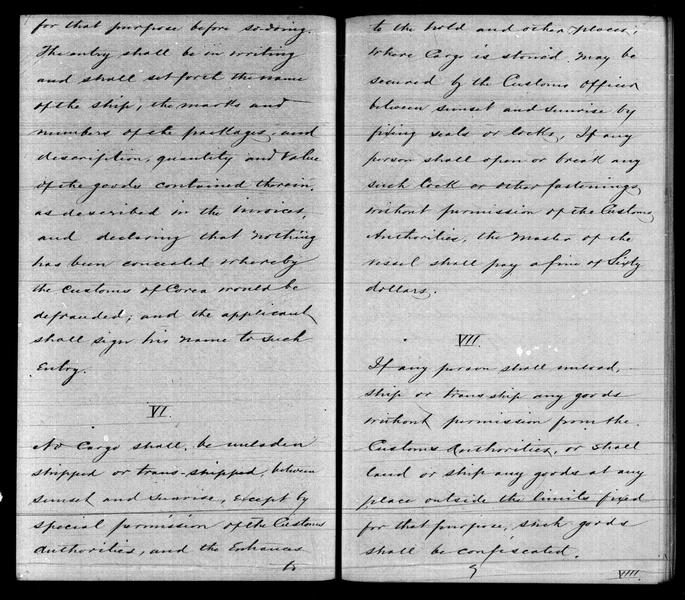 for that purpose before so doing.
The entry shall be in writing
and shall set forth the name
of the ship, the marks and
numbers of the packages, and
description, quantity and value
of the goods contained therein,
as described in the invoices,
and declaring that nothing
has been concealed whereby
the Customs of Corea would be
defrauded; and the applicant
shall sign his name to such
Entry.
VI.
No Cargo shall be unladen
shipped or trans-shipped, between
sunset and sunrise, except by
special permission of the Customs
Authorities, and the Entrances
to
to the hold and other places,
where Cargo is stowed may be
secured by the Customs Officer
between sunset and sunrise by
fixing seals or locks, If any
person shall open or break any
such lock or other fastenings
without permission of the Customs
Authorities, the Master of the
vessel shall pay a fine of Sixty
dollars.
VII.
If any person shall unload,
ship or transship any goods
without permission from the
Customs Authorities, or shall
land or ship any goods at any
place outside the limits fixed
for that purpose, such goods
shall be confiscated.
9
VIII.